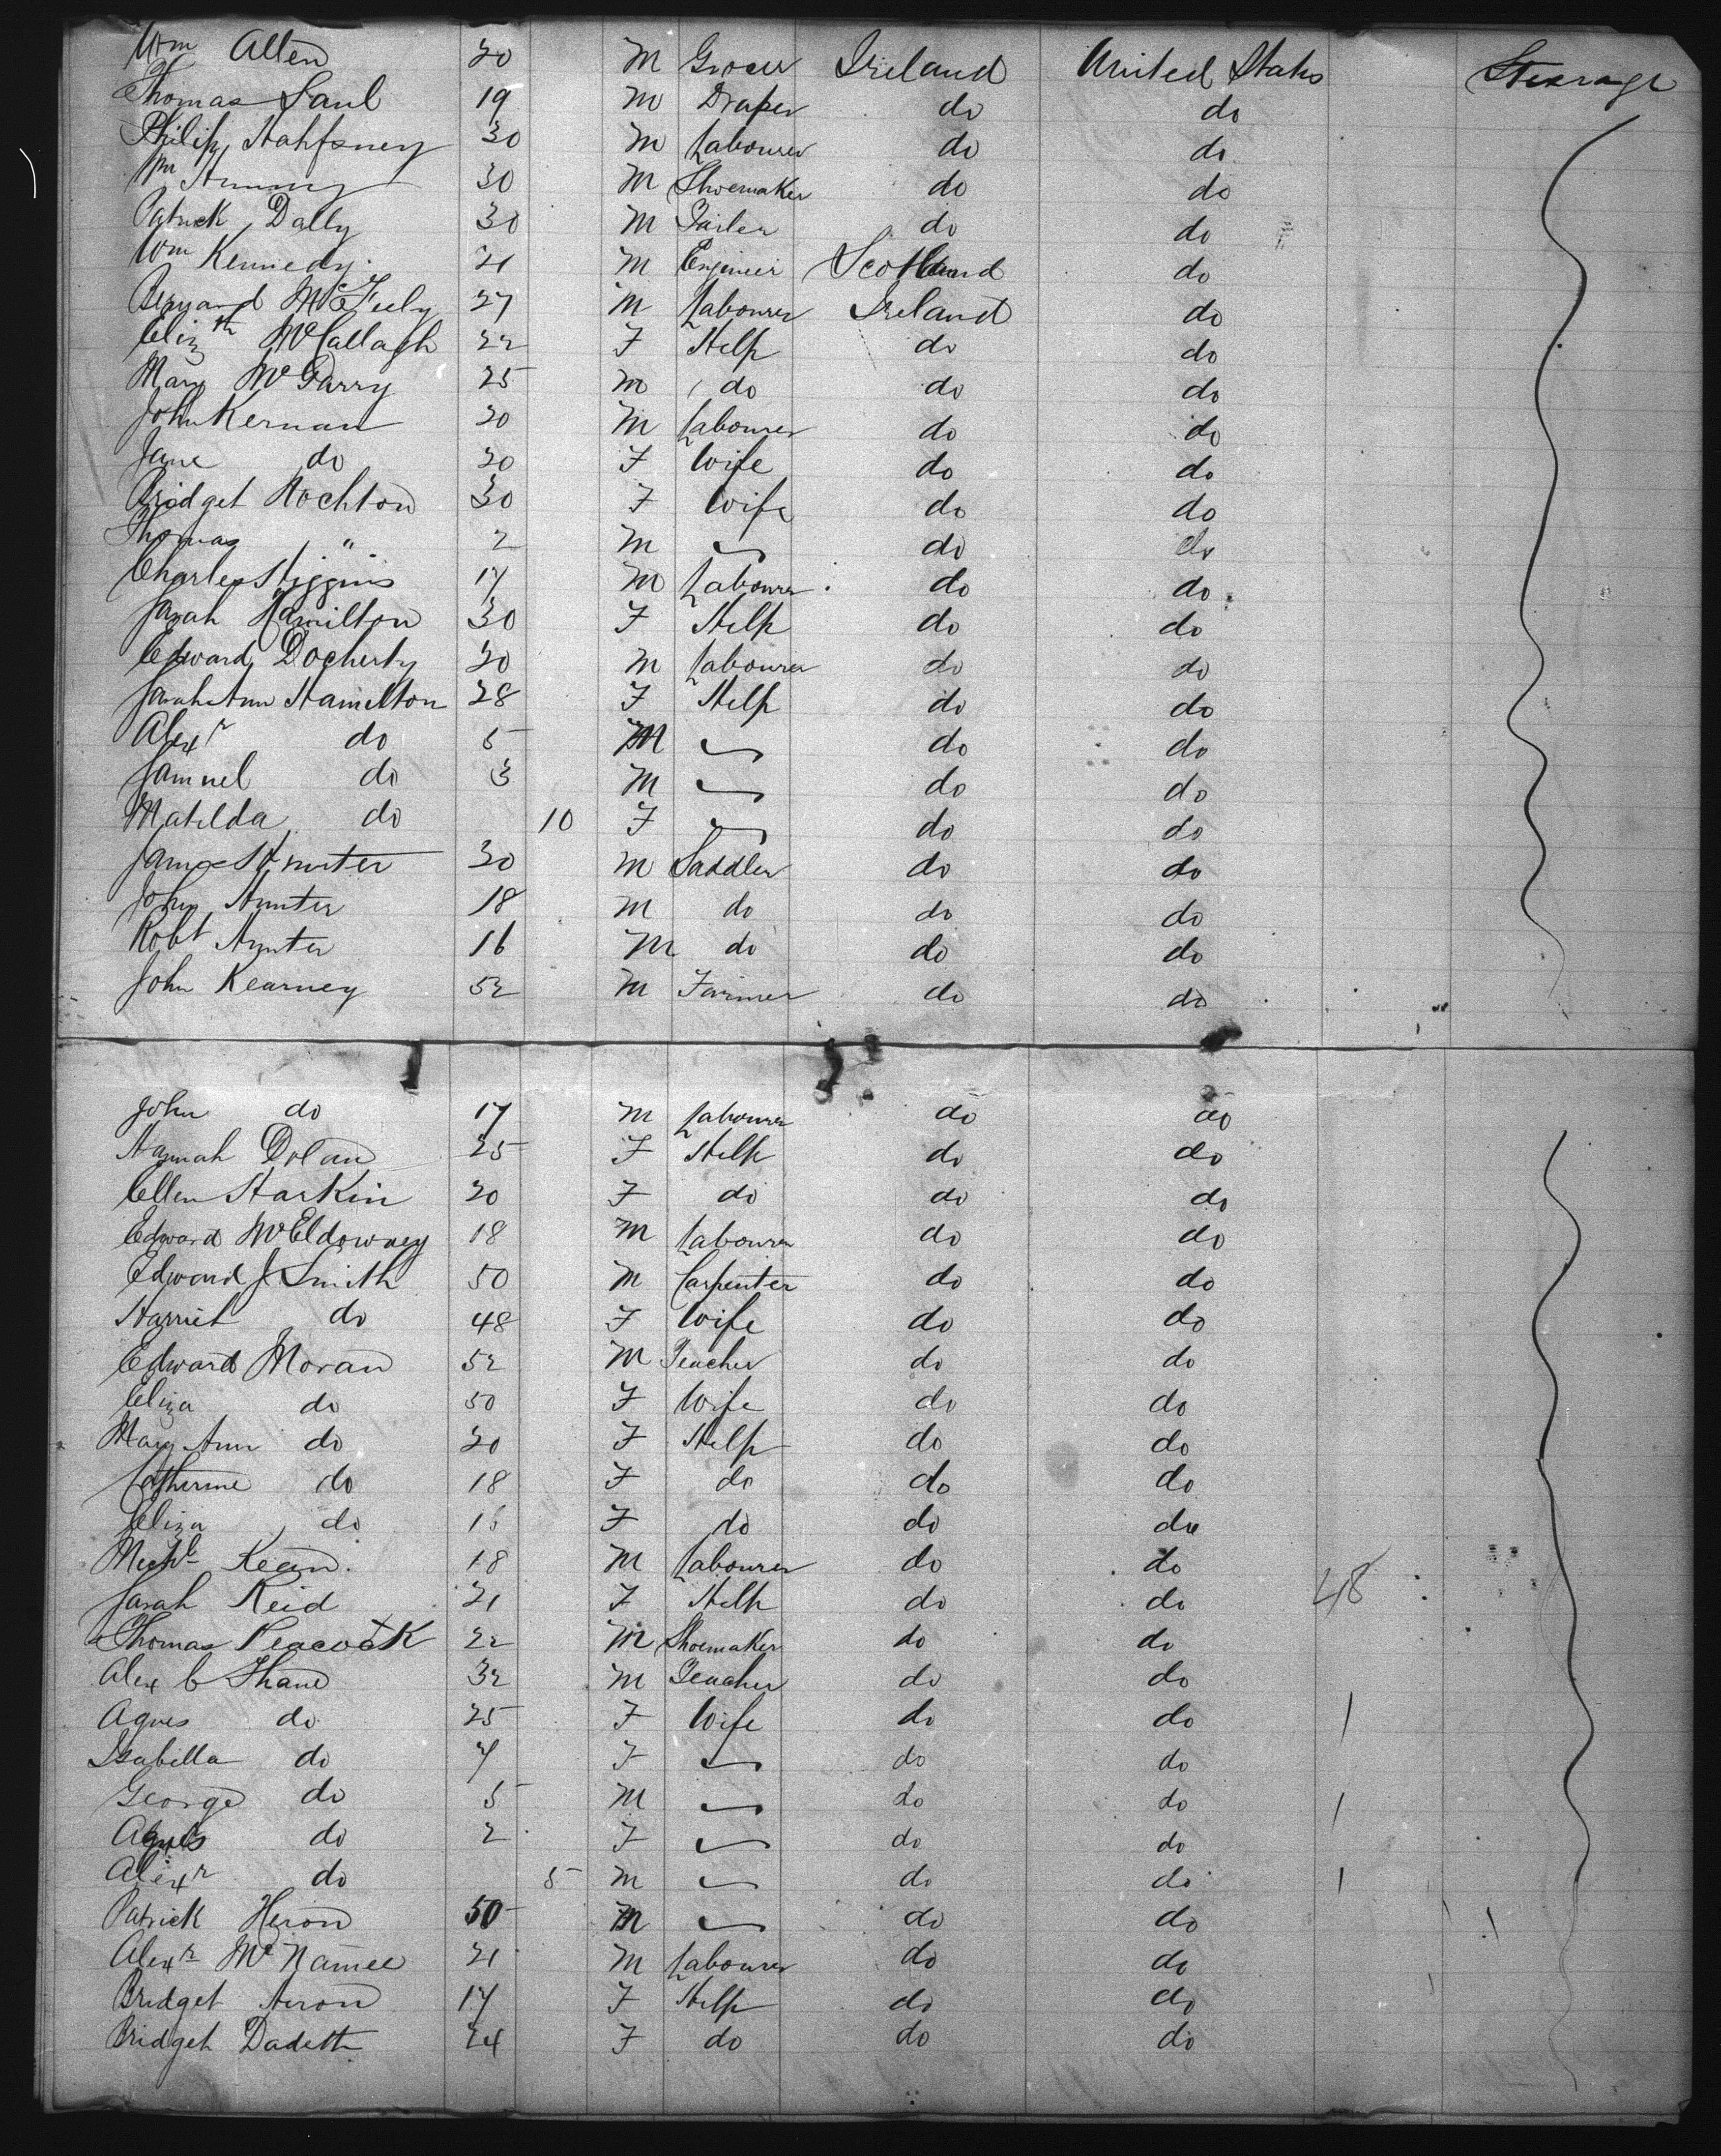 Wm Allen 20 M Grocer Ireland United States Steerage
Thomas Saul 19 M Draper do do
Philip 30 M Labourer do do
Wm 30 M Shoemaker do do
Patrick Dally 30 M Tailer do do
Wm Kennedy 21 M Engineer Scotland do
Bernard McFeely 27 M Labourer Ireland do
Elizth McCallagh 22 F Help do do
Mary McParry 25 M do do do
John Kernan 20 M Labourer do do
Jane do 20 F Wife do do
Bridget Hochton 30 F Wife do do
Thomas " 2 M do do
Charles Higgins 17 M Labourer do do
Sarah Hamilton 30 F Help do do
Edward Docherty 20 M Labourer do do
Sarah Ann Hamelton 28 F Help do do
Alexr do 5 M do do
Samuel do 3 M do do
Matilda do 10 F do do
James Hunter 30 M Saddler do do
John Hunter 18 M do do do
Robt Hunter 16 M do do do
John Kearney 52 M Farmer do do
John do 17 M Labourer do do
Hannah Dolan 25 F Help do do
Ellen Harkin 20 F do do do
Edward McEldowney 18 M Labourer do do
Edward J Smith 50 M Carpenter do do
Harriet do 48 F Wife do do
Edward Moran 52 M Teacher do do
Eliza do 50 F Wife do do
Mary Ann do 20 F Help do do
Catherine do 18 F do do do
Eliza do F do do do
Michl Kean 18 M Labourer do do
Sarah Reid 21 F Help do do 48
Thomas Peacock 22 M Shoemaker do do
Alex C Thane 32 M Teacher do do
Agnes do 25 F Wife do do
Isabella do 7 F do do
George do 5 M do do
Agnes do 2 F do do
Alexr do 5 M do do
Patrick Heron 50 M do do
Alexr McNamee 21 M Labourer do do
Bridget Heron 17 F Help do do
Bridget Dadeth 24 F do do do